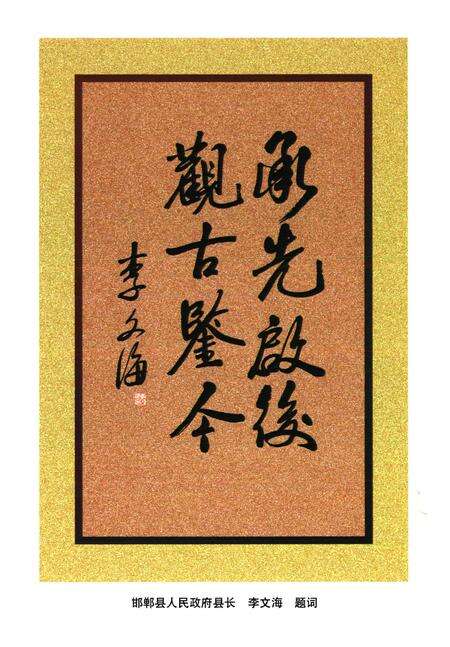 承先啟後
觀古鑒今
李文海
邯郸县人民政府县长 李文海 题词